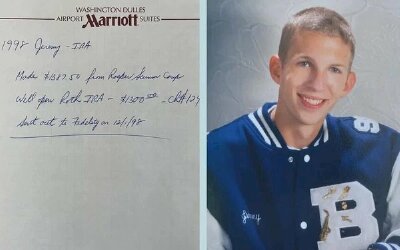 WASHINGTON DULLES
AIRPORT Marriott SUITES
1998 Jeremy - IRA
Made $1387.50 from Soccer Camp
We'll open Roth IRA - $1300.00 - ck# 124
Sent out to Fidelity on 12/1/98
B
Jeremy